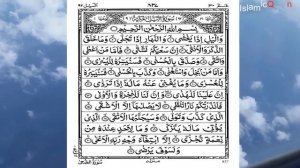 Islamic
بِسْمِ اللهِ الرَّحْمٰنِ الرَّحِيْمِ
وَالَّيْلِ اِذَا يَغْشٰى وَالنَّهَارِ اِذَا تَجَلّٰى وَمَا خَلَقَ
الذَّكَرَ وَالْاُنْثٰى اِنَّ سَعْيَكُمْ لَشَتّٰى فَاَمَّا مَنْ اَعْطٰى
وَاتَّقٰى وَصَدَّقَ بِالْحُسْنٰى فَسَنُيَسِّرُهٗ لِلْيُسْرٰى
وَاَمَّا مَنْ بَخِلَ وَاسْتَغْنٰى وَكَذَّبَ بِالْحُسْنٰى فَسَنُيَسِّرُهٗ
لِلْعُسْرٰى وَمَا يُغْنِيْ عَنْهُ مَالُهٗ اِذَا تَرَدّٰى
اِنَّ عَلَيْنَا لَلْهُدٰى وَاِنَّ لَنَا لَلْاٰخِرَةَ وَالْاُوْلٰى
فَاَنْذَرْتُكُمْ نَارًا تَلَظّٰى لَا يَصْلٰىهَا اِلَّا الْاَشْقَى
الَّذِيْ كَذَّبَ وَتَوَلّٰى وَسَيُجَنَّبُهَا الْاَتْقَى الَّذِيْ
يُؤْتِيْ مَالَهٗ يَتَزَكّٰى وَمَا لِاَحَدٍ عِنْدَهٗ مِنْ
نِّعْمَةٍ تُجْزٰى اِلَّا ابْتِغَآءَ وَجْهِ رَبِّهِ الْاَعْلٰى
وَلَسَوْفَ يَرْضٰى